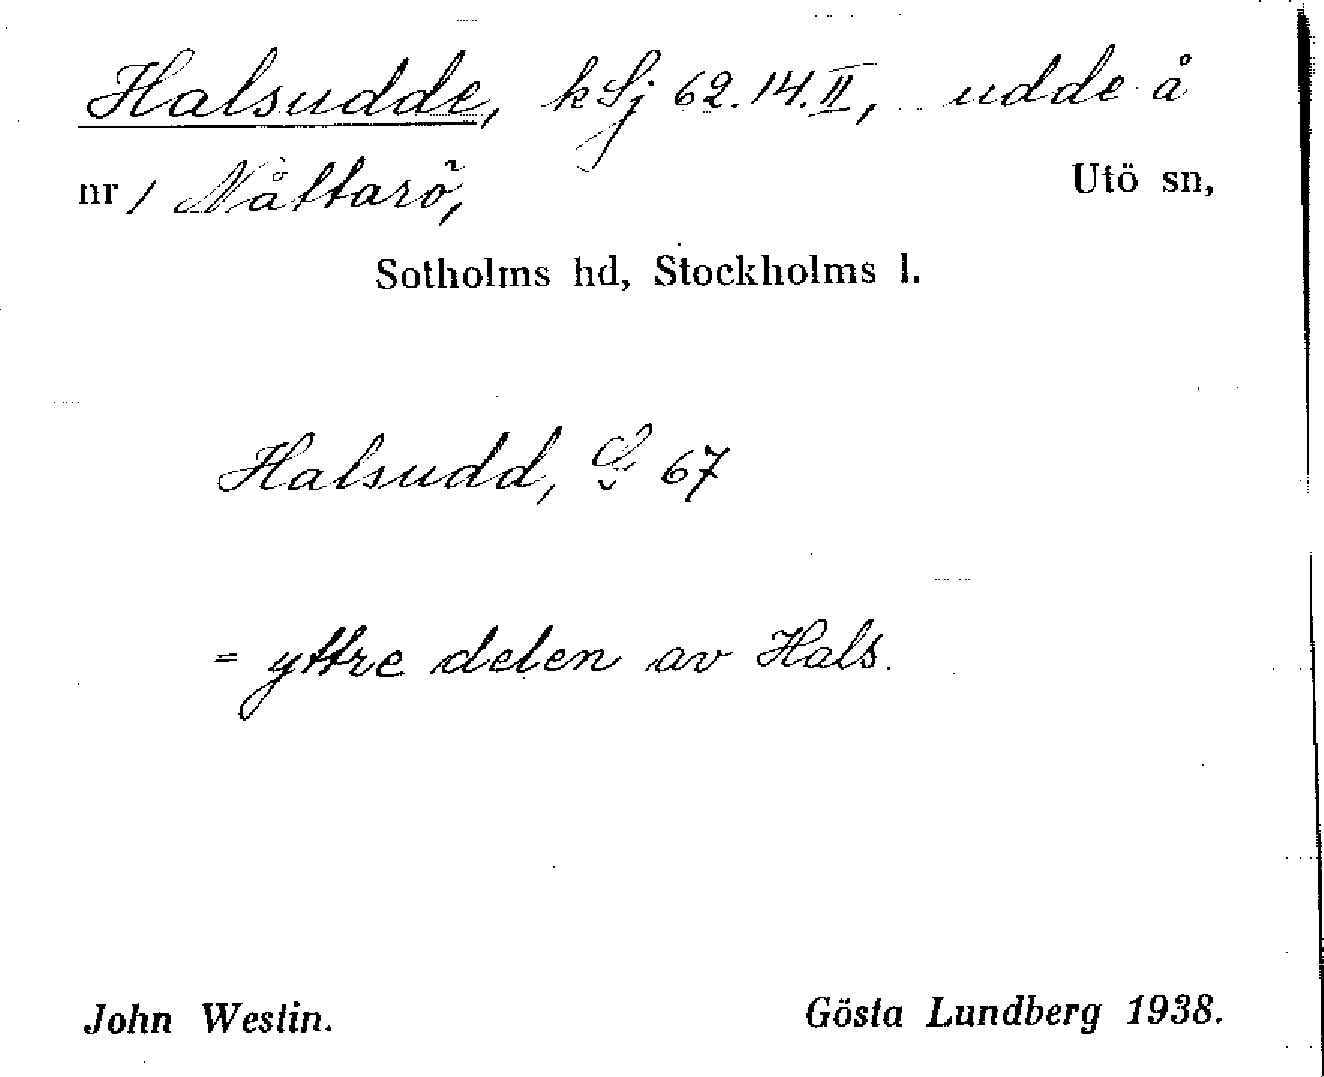 Halsudde, kSj 62.14.II, udde å
nr 1 Nåttarö, Utö sn,
Sotholms hd, Stockholms l.
Halsudd, S 67
= yttre delen av Hals.
John Westin. Gösta Lundberg 1938.